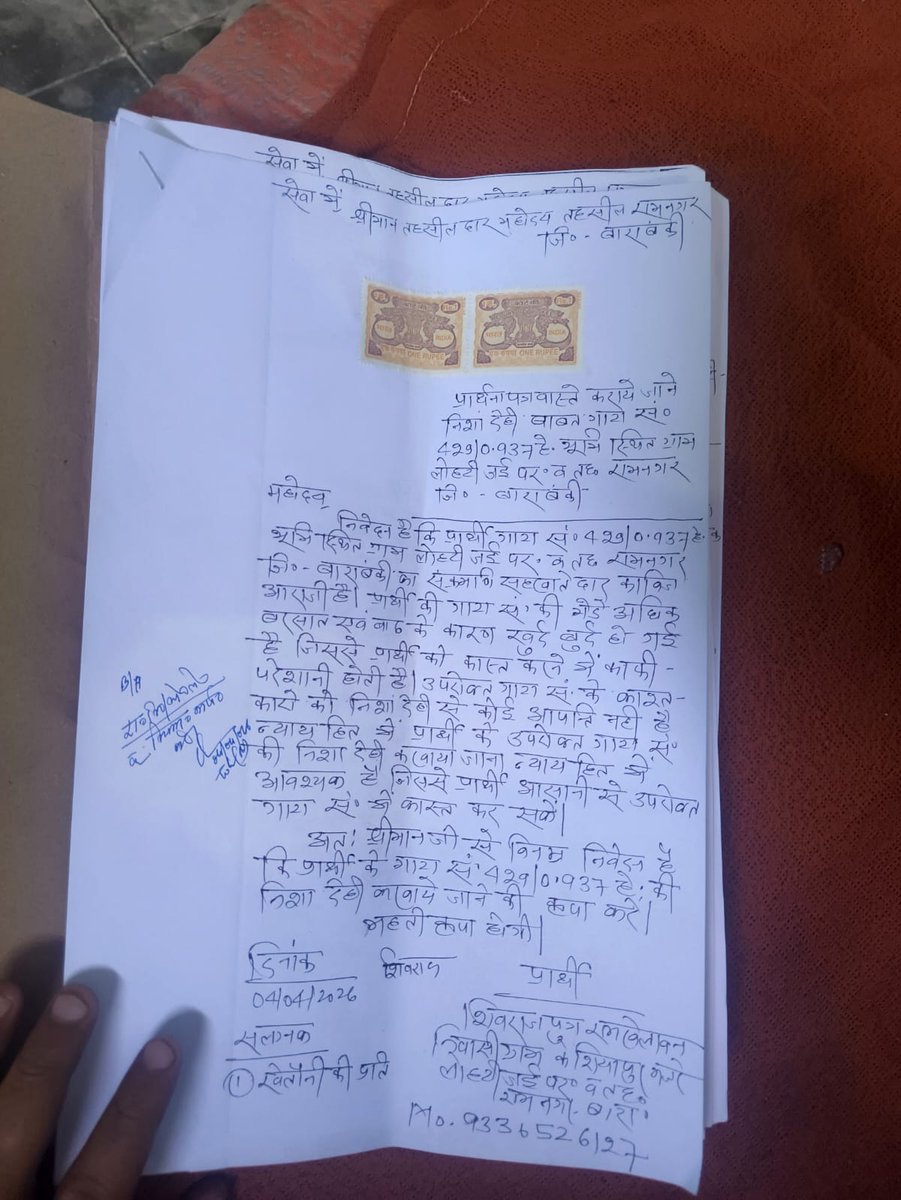 सेवा में
सेवा में
श्रीमान तहसीलदार महोदय तहसील रामनगर
जि०-बाराबंकी
भारत
INDIA
एक रुपया ONE RUPEE
भारत
INDIA
एक रुपया ONE RUPEE
प्रार्थना पत्र वास्ते कराये जाने
निशां देही बाबत गाटा सं०
429/0.937 हे. भूमि स्थित ग्राम
लोहटी जई पर० व तह० रामनगर
जि०-बाराबंकी
महोदय,
निवेदन है कि प्रार्थी गाटा सं० 429/0.937 हे. क
भूमि स्थित ग्राम लोहटी जई पर० व तह० रामनगर
जि०-बाराबंकी का संक्रमणि सहखातेदार काबिज
आराजी है। प्रार्थी की गाटा सं० की मेंड़े अधिक
बरसात एवं बाढ़ के कारण खुर्द बुर्द हो गई
है जिससे प्रार्थी को कास्त करने में काफी-
परेशानी होती है। उपरोक्त गाटा सं. के कास्त-
कारो को निशां देही से कोई आपत्ति नही है
न्याय हित में प्रार्थी के उपरोक्त गाटा सं०
की निशा देही करवाया जाना न्याय हित में
आवश्यक है जिससे प्रार्थी आसानी से उपरोक्त
गाटा सं० में कास्त कर सकें।
अतः श्रीमान जी से विनम्र निवेदन है
कि प्रार्थी के गाटा सं० 429/0.937 हे. की
निशा देही करवाये जाने की कृपा करें।
महती कृपा होगी।
दिनांक
शिवराज
प्रार्थी
04/04/2026
सलग्नक
① खतौनी की प्रति
शिवराज पुत्र रामखेलावन
निवासी ग्राम कशियापुर
लोहटी जई पर० व तह०
रामनगर बारा०
Mo. 9336526127